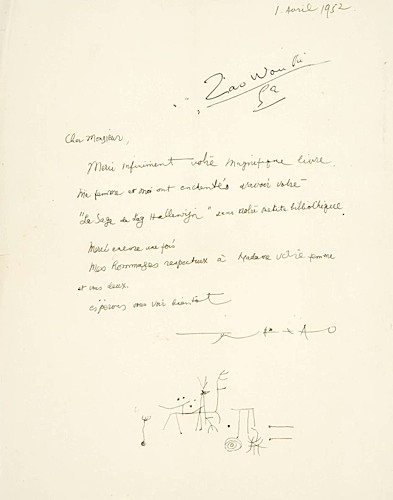 1. Avril 1952
Zao Wou Ki
Cher Monsieur,
Merci infiniment votre magnifique livre.
Ma femme et moi ont enchentés d'avoir votre
"La Saga de Log Hallewijn" dans notre petite bibliothèque
Merci encore une fois
Mes hommages respectueux à Madame votre femme
et vous deux.
espérons vous voir bientôt
ZAO